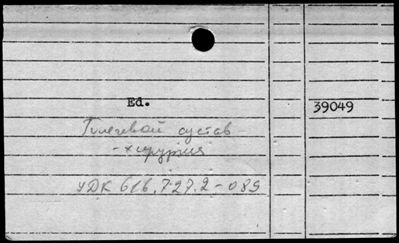 Ed.
39049
Плечевой сустав
- хирургия
УДК 616.727.2-089